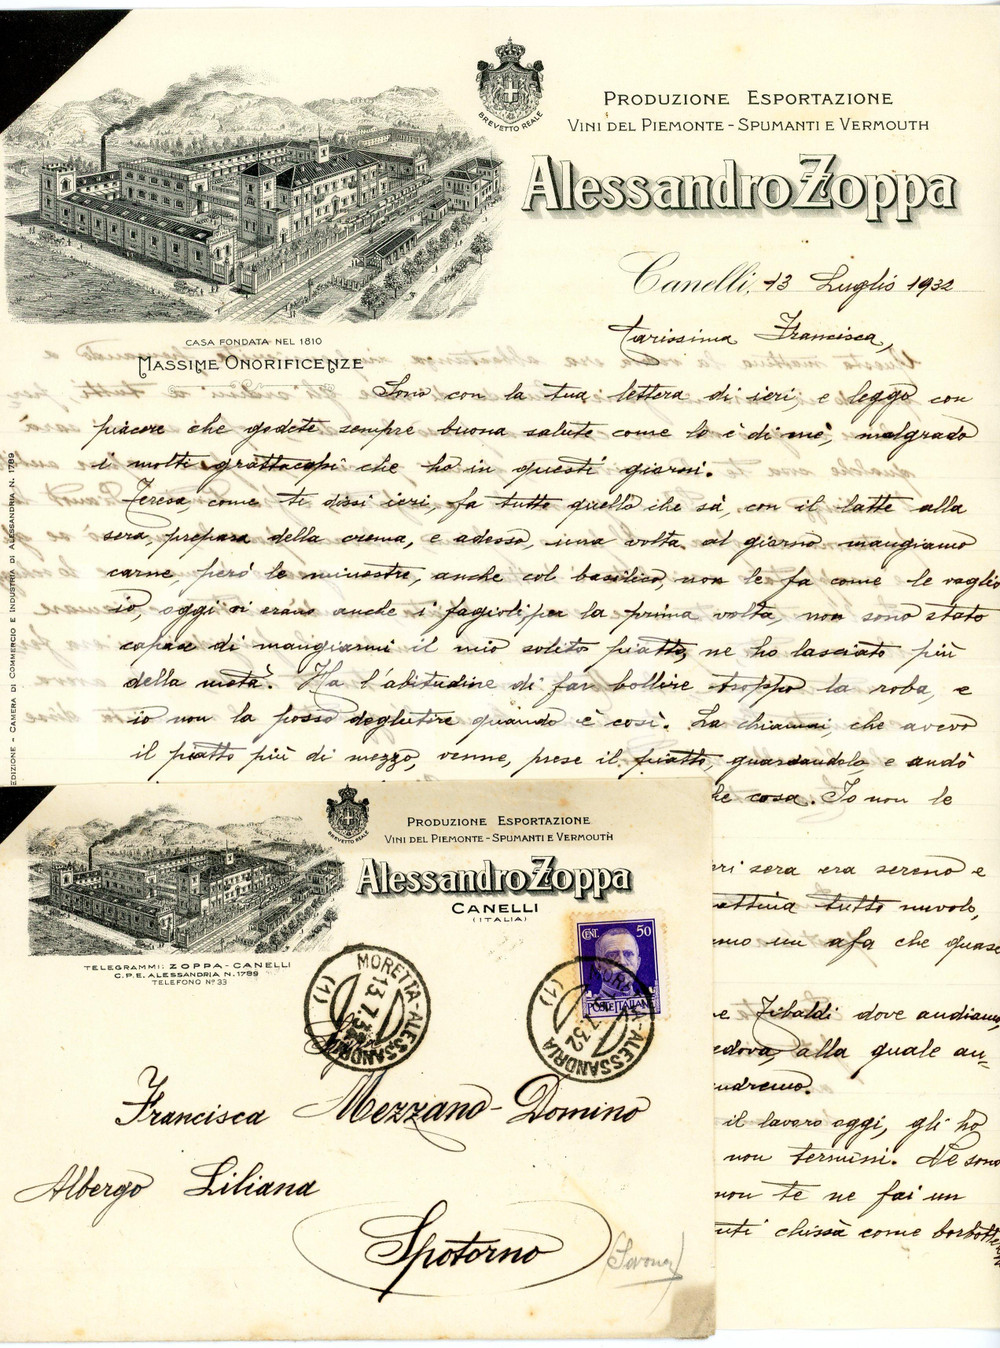 BREVETTO REALE
PRODUZIONE ESPORTAZIONE
VINI DEL PIEMONTE - SPUMANTI E VERMOUTH
Alessandro Zoppa
Canelli, 13 Luglio 1932
CASA FONDATA NEL 1810
MASSIME ONORIFICENZE
Carissima Francisca,
Sono con la tua lettera di ieri, e leggo con
piacere che godete sempre buona salute come lo è di me, malgrado
i molti grattacapi che ho in questi giorni.
Teresa, come ti dissi ieri, fa tutto quello che sà, con il latte alla
sera, prepara della crema, e adesso, una volta al giorno mangiamo
carne, però le minestre, anche col basilico, non le fa come le voglio
io, oggi vi erano anche i fagioli, per la prima volta, non sono stato
capace di mangiarmi il mio solito piatto, ne ho lasciato più
della metà. Ha l'abitudine di far bollire troppo la roba, e
io non la posso deglutire quando è così. La chiamai, che avevo
il piatto più di mezzo, venne, prese il piatto, guardandolo, e andò
che cosa. Io non le
ri sera era sereno e
attina tutto nuvolo,
amo un afa che quase
e Tibaldi dove andiamo
edova, alla quale an-
ndremo.
il lavoro oggi, gli ho
non termini. Ne sono
non te ne fai un
uti chissà come borbotte
EDIZIONE - CAMERA DI COMMERCIO E INDUSTRIA DI ALESSANDRIA N. 1789
BREVETTO REALE
PRODUZIONE ESPORTAZIONE
VINI DEL PIEMONTE - SPUMANTI E VERMOUTH
Alessandro Zoppa
CANELLI
(ITALIA)
TELEGRAMMI: ZOPPA - CANELLI
C.P.E. ALESSANDRIA N. 1789
TELEFONO N° 33
CENT. 50
POSTE ITALIANE
MORETTA-ALESSANDRIA (1)
13.7.32
MORETTA-ALESSANDRIA (1)
7.32
Francisca Mezzano-Domino
Albergo Liliana
Spotorno
(Savona)